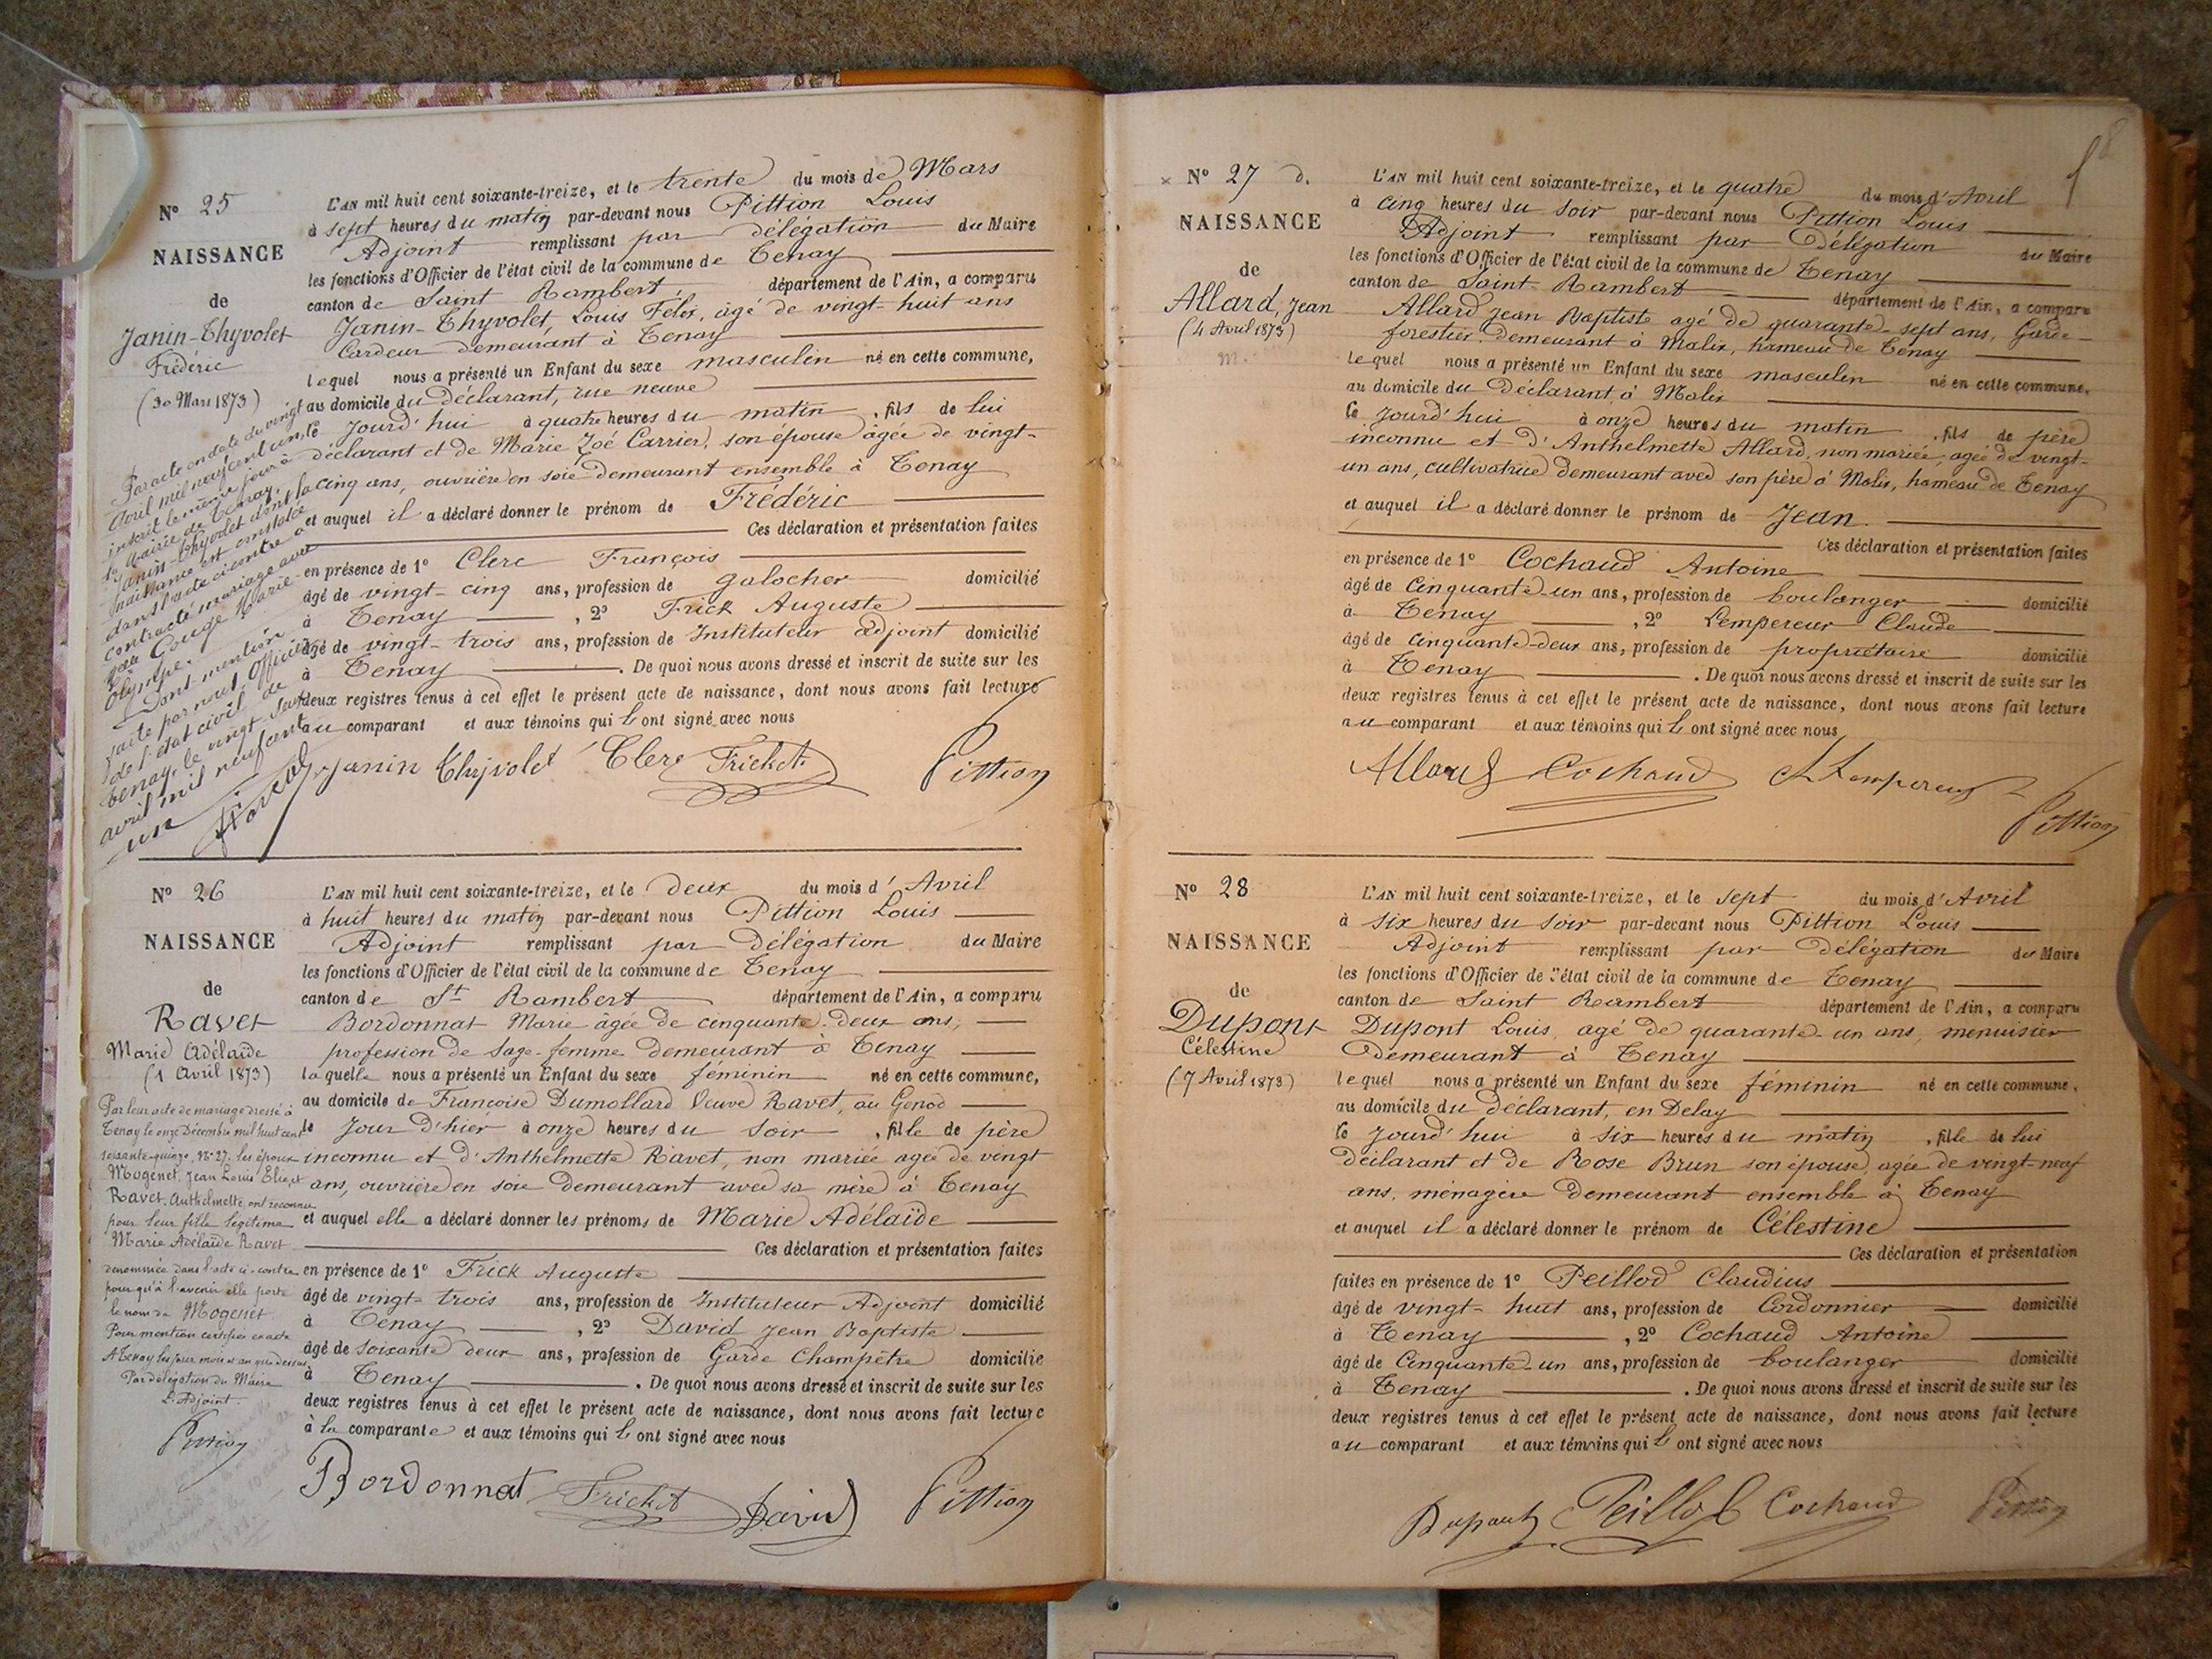 N° 25
NAISSANCE
de
Janin-Thyvolet
Frédéric
(30 Mars 1873)
Par acte en date du vingt
Avril mil neuf cent un,
inscrit le même jour à
la Mairie de Tenay,
Janin-Thyvolet dont la
naissance est constatée
dans l'acte ci-contre a
contracté mariage avec
Couge Marie
Olympe.
Dont mention
faite par nous, Officier
de l'état civil de
Tenay, le vingt sept
avril mil neuf cent
un
L'AN mil huit cent soixante-treize, et le trente du mois de Mars
à sept heures du matin par-devant nous Pittion Louis
Adjoint remplissant par délégation du Maire
les fonctions d'Officier de l'état civil de la commune de Tenay
canton de Saint Rambert, département de l'Ain, a comparu
Janin-Thyvolet, Louis Félix, âgé de vingt-huit ans
Cardeur demeurant à Tenay
lequel nous a présenté un Enfant du sexe masculin né en cette commune,
au domicile du déclarant, rue neuve
le jourd'hui à quatre heures du matin, fils de lui
déclarant et de Marie Zoé Carrier, son épouse âgée de vingt-
cinq ans, ouvrière en soie demeurant ensemble à Tenay
et auquel il a déclaré donner le prénom de Frédéric
Ces déclaration et présentation faites
en présence de 1° Clerc François
âgé de vingt-cinq ans, profession de galocher domicilié
à Tenay, 2° Frick Auguste
âgé de vingt-trois ans, profession de Instituteur adjoint domicilié
à Tenay. De quoi nous avons dressé et inscrit de suite sur les
deux registres tenus à cet effet le présent acte de naissance, dont nous avons fait lecture
au comparant et aux témoins qui l'ont signé avec nous
Janin Thyvolet Clerc Frick At Pittion
N° 26
NAISSANCE
de
Ravet
Marie Adélaïde
(1 Avril 1873)
Par leur acte de mariage dressé à
Tenay le onze Décembre mil huit cent
soixante-quinze, N° 27, les époux
Mogenet, Jean Louis Elie, et
Ravet, Anthelmette, ont reconnu
pour leur fille légitime
Marie Adélaïde Ravet
dénommée dans l'acte ci-contre
pour qu'à l'avenir elle porte
le nom de Mogenet
Pour mention certifiée exacte
A Tenay les jour mois et an que dessus
Par délégation du Maire
L'Adjoint.
Pittion
L'AN mil huit cent soixante-treize, et le deux du mois d'Avril
à huit heures du matin par-devant nous Pittion Louis
Adjoint remplissant par délégation du Maire
les fonctions d'Officier de l'état civil de la commune de Tenay
canton de St Rambert département de l'Ain, a comparu
Bordonnat Marie âgée de cinquante-deux ans,
profession de Sage-femme demeurant à Tenay
laquelle nous a présenté un Enfant du sexe féminin né en cette commune,
au domicile de Françoise Dumollard Veuve Ravet, au Genod
le jour d'hier à onze heures du soir, fille de père
inconnu et d'Anthelmette Ravet, non mariée agée de vingt
ans, ouvrière en soie demeurant avec sa mère à Tenay
et auquel elle a déclaré donner les prénoms de Marie Adélaïde
Ces déclaration et présentation faites
en présence de 1° Frick Auguste
âgé de vingt-trois ans, profession de Instituteur Adjoint domicilié
à Tenay, 2° David Jean Baptiste
âgé de soixante deux ans, profession de Garde Champêtre domicilié
à Tenay. De quoi nous avons dressé et inscrit de suite sur les
deux registres tenus à cet effet le présent acte de naissance, dont nous avons fait lecture
à la comparante et aux témoins qui l'ont signé avec nous
Bordonnat Frick At David Pittion
8
N° 27 d.
NAISSANCE
de
Allard, Jean
(4 Avril 1873)
m.
L'AN mil huit cent soixante-treize, et le quatre du mois d'Avril
à cinq heures du soir par-devant nous Pittion Louis
Adjoint remplissant par Délégation du Maire
les fonctions d'Officier de l'état civil de la commune de Tenay
canton de Saint-Rambert département de l'Ain, a comparu
Allard Jean Baptiste agé de quarante-sept ans, Garde-
forestier demeurant à Malix, hameau de Tenay
lequel nous a présenté un Enfant du sexe masculin né en cette commune,
au domicile du Déclarant à Malix
le jourd'hui à onze heures du matin, fils de père
inconnu et d'Anthelmette Allard, non mariée, agée de vingt-
un ans, cultivatrice demeurant avec son père à Malix, hameau de Tenay
et auquel il a déclaré donner le prénom de Jean.
Ces déclaration et présentation faites
en présence de 1° Cochaud Antoine
âgé de cinquante-un ans, profession de boulanger domicilié
à Tenay, 2° Lempereur Claude
âgé de cinquante-deux ans, profession de propriétaire domicilié
à Tenay. De quoi nous avons dressé et inscrit de suite sur les
deux registres tenus à cet effet le présent acte de naissance, dont nous avons fait lecture
au comparant et aux témoins qui l'ont signé avec nous
Allard Cochaud Cl Lempereur
Pittion
N° 28
NAISSANCE
de
Dupont
Célestine
(7 Avril 1873)
L'AN mil huit cent soixante-treize, et le sept du mois d'Avril
à six heures du soir par-devant nous Pittion Louis
Adjoint remplissant par délégation du Maire
les fonctions d'Officier de l'état civil de la commune de Tenay
canton de Saint Rambert département de l'Ain, a comparu
Dupont Louis, agé de quarante-un ans, menuisier
demeurant à Tenay
lequel nous a présenté un Enfant du sexe féminin né en cette commune,
au domicile du déclarant, en Delay
le jourd'hui à six heures du matin, fille de lui
déclarant et de Rose Brun son épouse, agée de vingt-neuf
ans, ménagère demeurant ensemble à Tenay
et auquel il a déclaré donner le prénom de Célestine
Ces déclaration et présentation
faites en présence de 1° Peillod Claudius
âgé de vingt-huit ans, profession de Cordonnier domicilié
à Tenay, 2° Cochaud Antoine
âgé de Cinquante-un ans, profession de boulanger domicilié
à Tenay. De quoi nous avons dressé et inscrit de suite sur les
deux registres tenus à cet effet le présent acte de naissance, dont nous avons fait lecture
au comparant et aux témoins qui l'ont signé avec nous
Dupont Peillod Cochaud Pittion